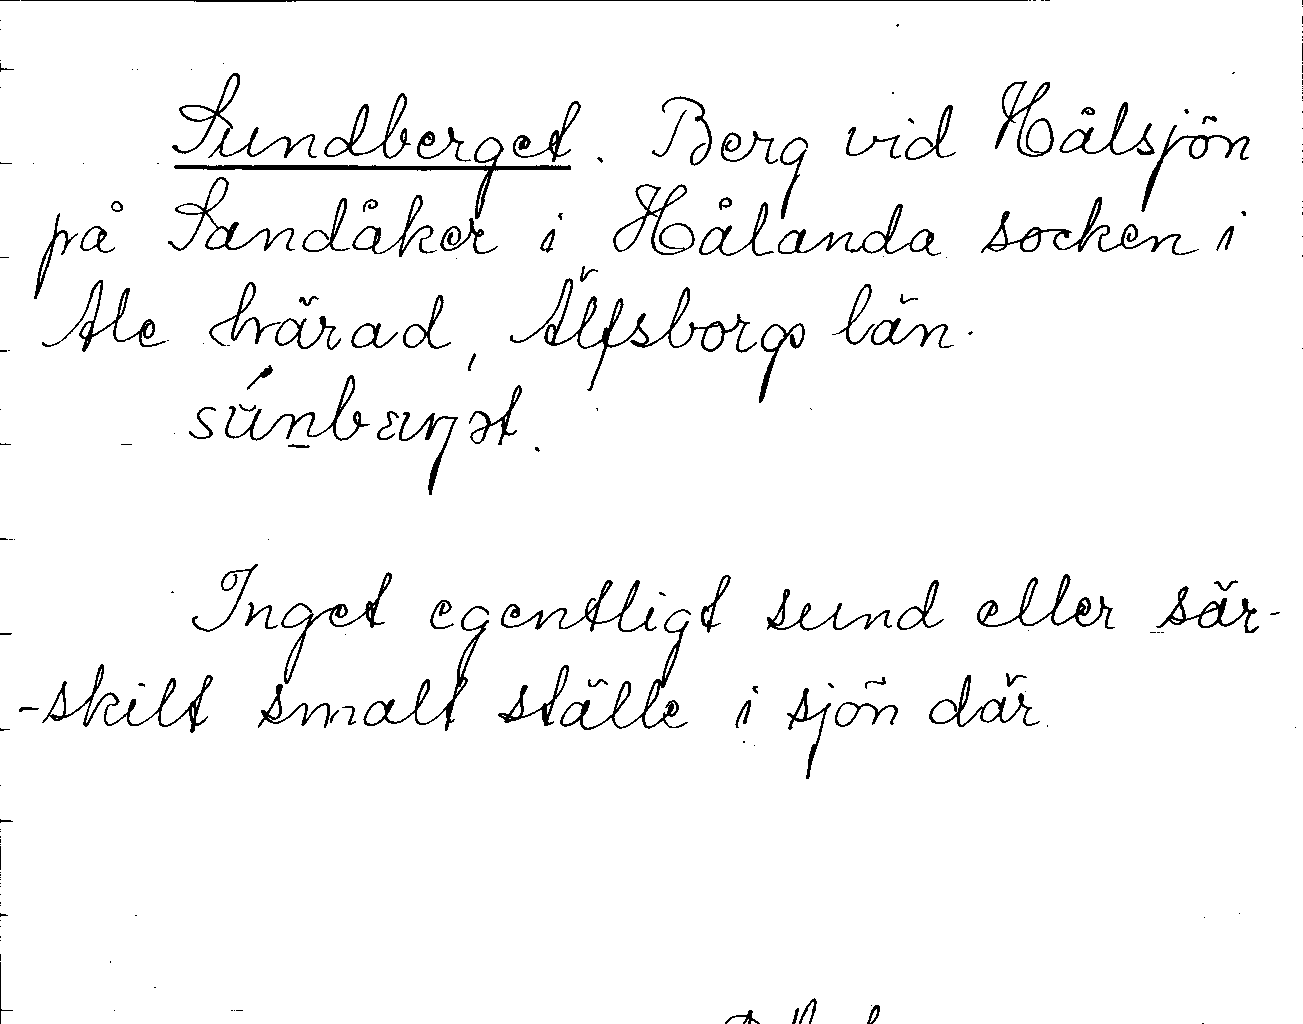 Sundberget. Berg vid Hålsjön
på Sandåker i Hålanda socken i
Ale härad, Älfsborgs län.
Inget egentligt sund eller sär-
-skilt smalt ställe i sjön där